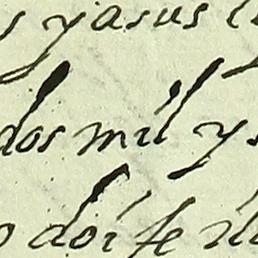 s y a sus
dos mil y s
o doi fe